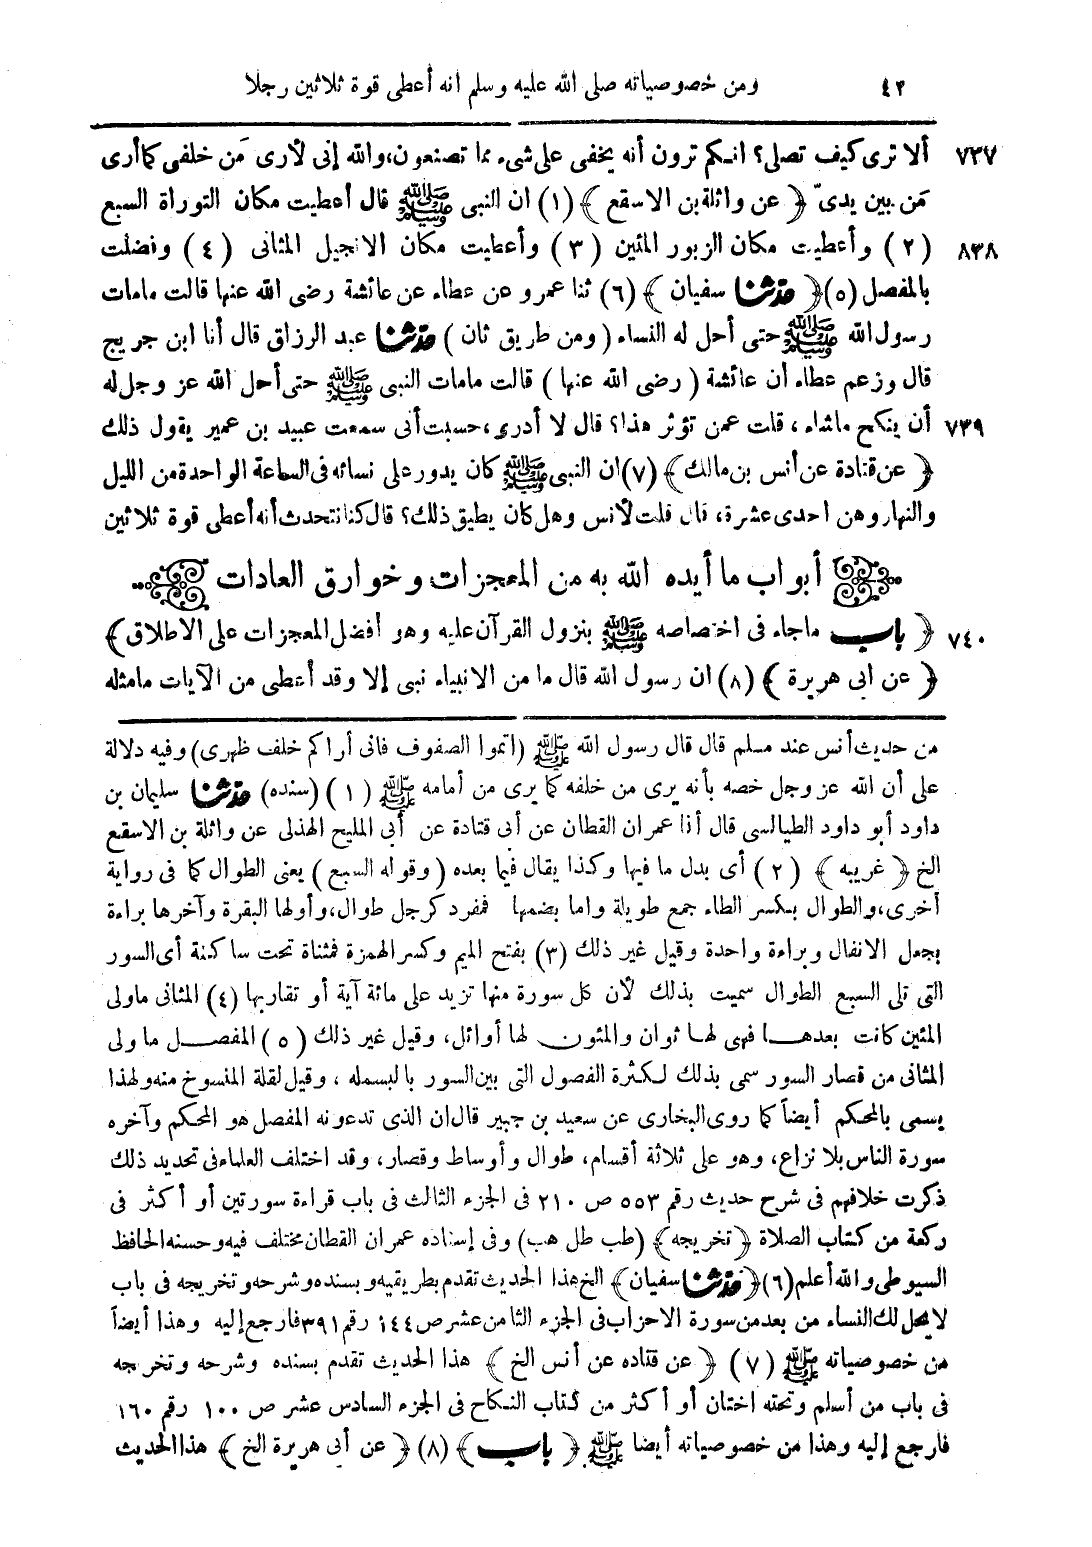 ٤٢ ومن خصوصياته صلى الله عليه وسلم انه أعطى قوة ثلاثين رجلا
٧٣٧ ألا ترى كيف تصلى؟ انكم ترون أنه يخفى على شىء مما تصنعون، والله إنى لأرى مَن خلفى كما أرى
مَن بين يدىّ ﴿ عن واثلة بن الاسقع ﴾ (١) ان النبى ﷺ قال أعطيت مكان التوراة السبع
٨٣٨ (٢) وأعطيت مكان الزبور المئين (٣) وأعطيت مكان الانجيل المثانى (٤) وفضلت
بالمفصل (٥) ﴿ حدّثنا سفيان ﴾ (٦) ثنا عمرو عن عطاء عن عائشة رضى الله عنها قالت مامات
رسول الله ﷺ حتى أحل له النساء (ومن طريق ثان) حدّثنا عبد الرزاق قال أنا ابن جريج
قال وزعم عطاء أن عائشة (رضى الله عنها) قالت مامات النبى ﷺ حتى أحل الله عز وجل له
٧٣٩ أن ينكح ماشاء، قلت عمن تؤثر هذا؟ قال لا أدرى، حسبت أنى سمعت عبيد بن عمير يقول ذلك
﴿ عن قتادة عن أنس بن مالك ﴾ (٧) ان النبى ﷺ كان يدور على نسائه فى الساعة الواحدة من الليل
والنهار وهن احدى عشرة، قال قلت لأنس وهل كان يطيق ذلك؟ قال كنا نتحدث أنه أعطى قوة ثلاثين
أبواب ما أيده الله به من المعجزات وخوارق العادات
٧٤٠ ﴿ باب ماجاء فى اختصاصه ﷺ بنزول القرآن عليه وهو أفضل المعجزات على الاطلاق ﴾
﴿ عن ابى هريرة ﴾ (٨) ان رسول الله قال ما من الانبياء نبى إلا وقد أعطى من الآيات مامثله
من حديث أنس عند مسلم قال قال رسول الله ﷺ (اتموا الصفوف فانى أراكم خلف ظهرى) وفيه دلالة
على أن الله عز وجل خصه بأنه يرى من خلفه كما يرى من أمامه ﷺ (١) (سنده) حدّثنا سليمان بن
داود أبو داود الطيالسى قال أنا عمران القطان عن أبى قتادة عن أبى المليح الهذلى عن واثلة بن الاسقع
الخ ﴿ غريبه ﴾ (٢) أى بدل ما فيها وكذا يقال فيما بعده (وقوله السبع) يعنى الطوال كما فى رواية
أخرى، والطوال بكسر الطاء جمع طويلة واما بضمها فمفرد كرجل طوال، وأولها البقرة وآخرها براءة
بجعل الانفال وبراءة واحدة وقيل غير ذلك (٣) بفتح الميم وكسر الهمزة فمثناة تحت ساكنة أى السور
التى تلى السبع الطوال سميت بذلك لأن كل سورة منها تزيد على مائة آية أو تقاربها (٤) المثانى ماولى
المئين كانت بعدها فهى لها ثوان والمئون لها أوائل، وقيل غير ذلك (٥) المفصل ما ولى
المثانى من قصار السور سمى بذلك لكثرة الفصول التى بين السور بالبسمله، وقيل لقلة المنسوخ منه ولهذا
يسمى بالمحكم أيضاً كما روى البخارى عن سعيد بن جبير قال ان الذى تدعونه المفصل هو المحكم وآخره
سورة الناس بلا نزاع، وهو على ثلاثة أقسام، طوال وأوساط وقصار، وقد اختلف العلماء فى تحديد ذلك
ذكرت خلافهم فى شرح حديث رقم ٥٥٣ ص ٢١٠ فى الجزء الثالث فى باب قراءة سورتين أو أكثر فى
ركعة من كتاب الصلاة ﴿ تخريجه ﴾ (طب طل هب) وفى إسناده عمران القطان مختلف فيه وحسنه الحافظ
السيوطى والله أعلم (٦) ﴿ حدّثنا سفيان ﴾ الخ هذا الحديث تقدم بطريقيه وبسنده وشرحه وتخريجه فى باب
لا يحل لك النساء من بعد من سورة الاحزاب فى الجزء الثامن عشر ص ١٤٤ رقم ٣٩١ فارجع إليه وهذا أيضاً
من خصوصياته ﷺ (٧) ﴿ عن قتاده عن أنس الخ ﴾ هذا الحديث تقدم بسنده وشرحه وتخريجه
فى باب من أسلم وتحته اختان أو أكثر من كتاب النكاح فى الجزء السادس عشر ص ١٠٠ رقم ١٦٠
فارجع إليه وهذا من خصوصياته أيضا ﷺ ﴿ باب ﴾ (٨) ﴿ عن أبى هريرة الخ ﴾ هذا الحديث